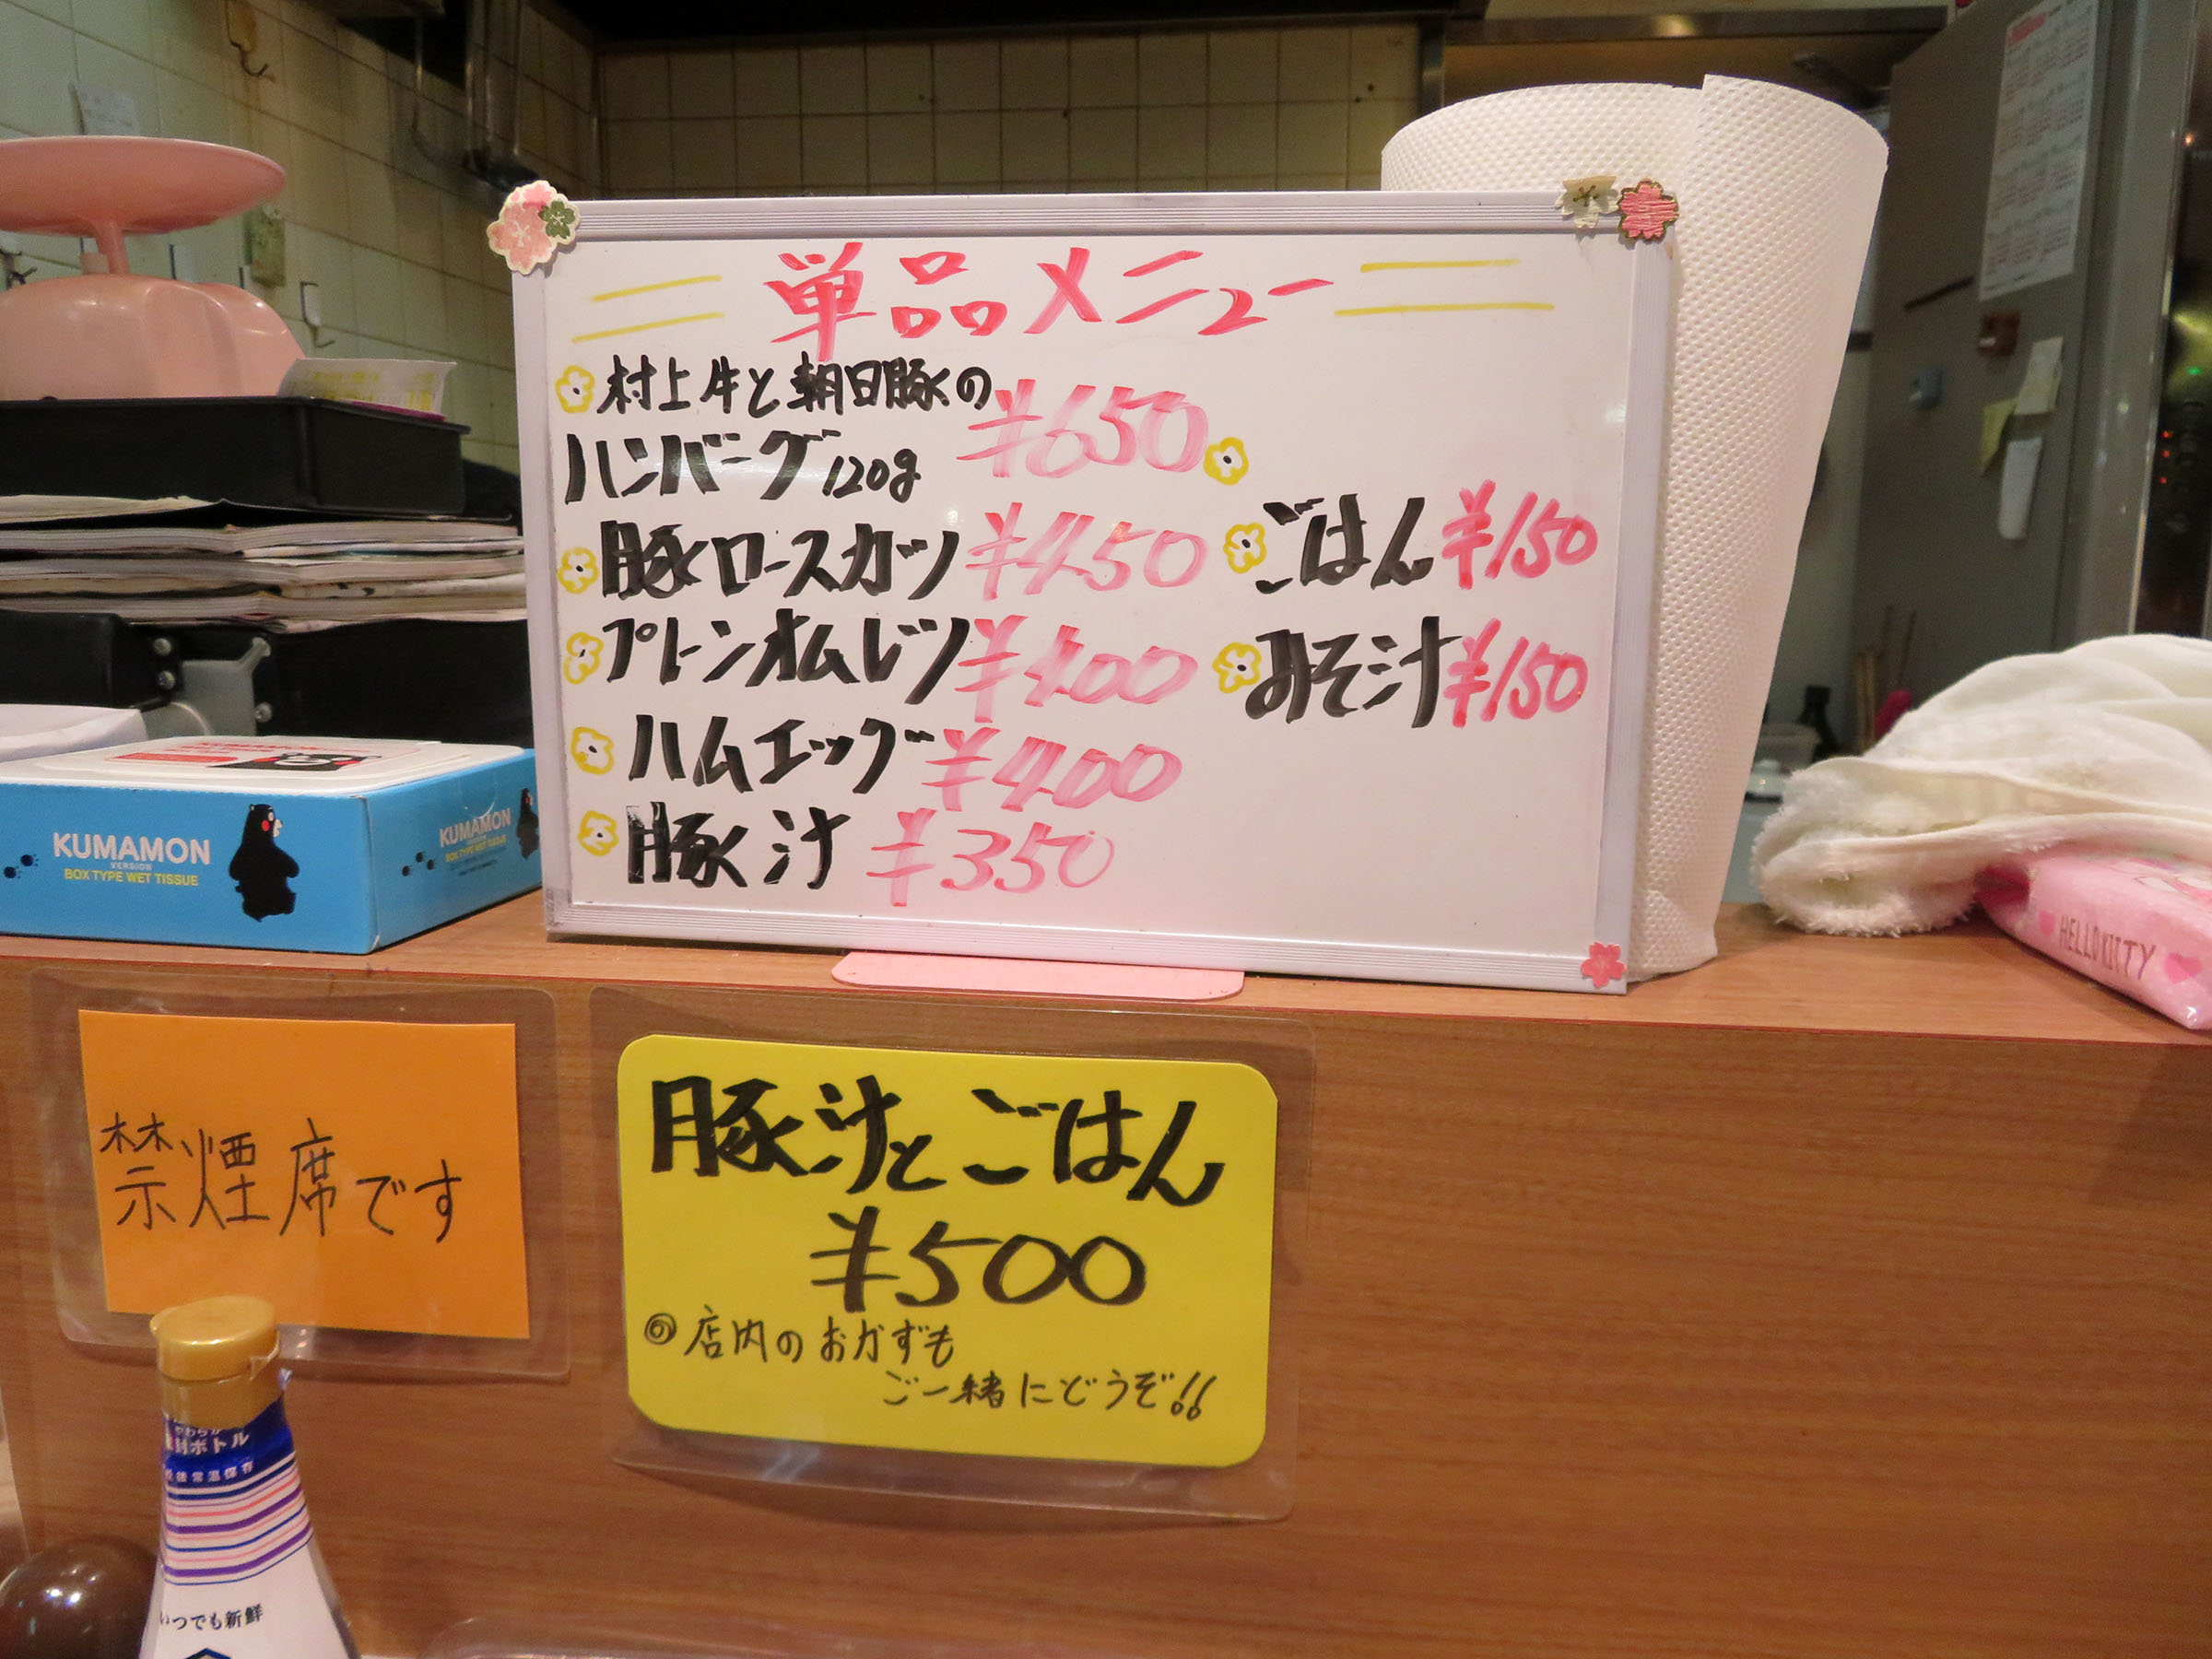 単品メニュー
村上牛と朝日豚の
ハンバーグ120g ¥650
豚ロースカツ ¥450
プレーンオムレツ ¥400
ハムエッグ ¥400
豚汁 ¥350
ごはん ¥150
みそ汁 ¥150
KUMAMON
VERSION
BOX TYPE WET TISSUE
KUMAMON
BOX TYPE WET TISSUE
HELLO KITTY
禁煙席です
豚汁とごはん
¥500
◎店内のおかずも
ご一緒にどうぞ!!
やわらか
密封ボトル
常温保存
いつでも新鮮